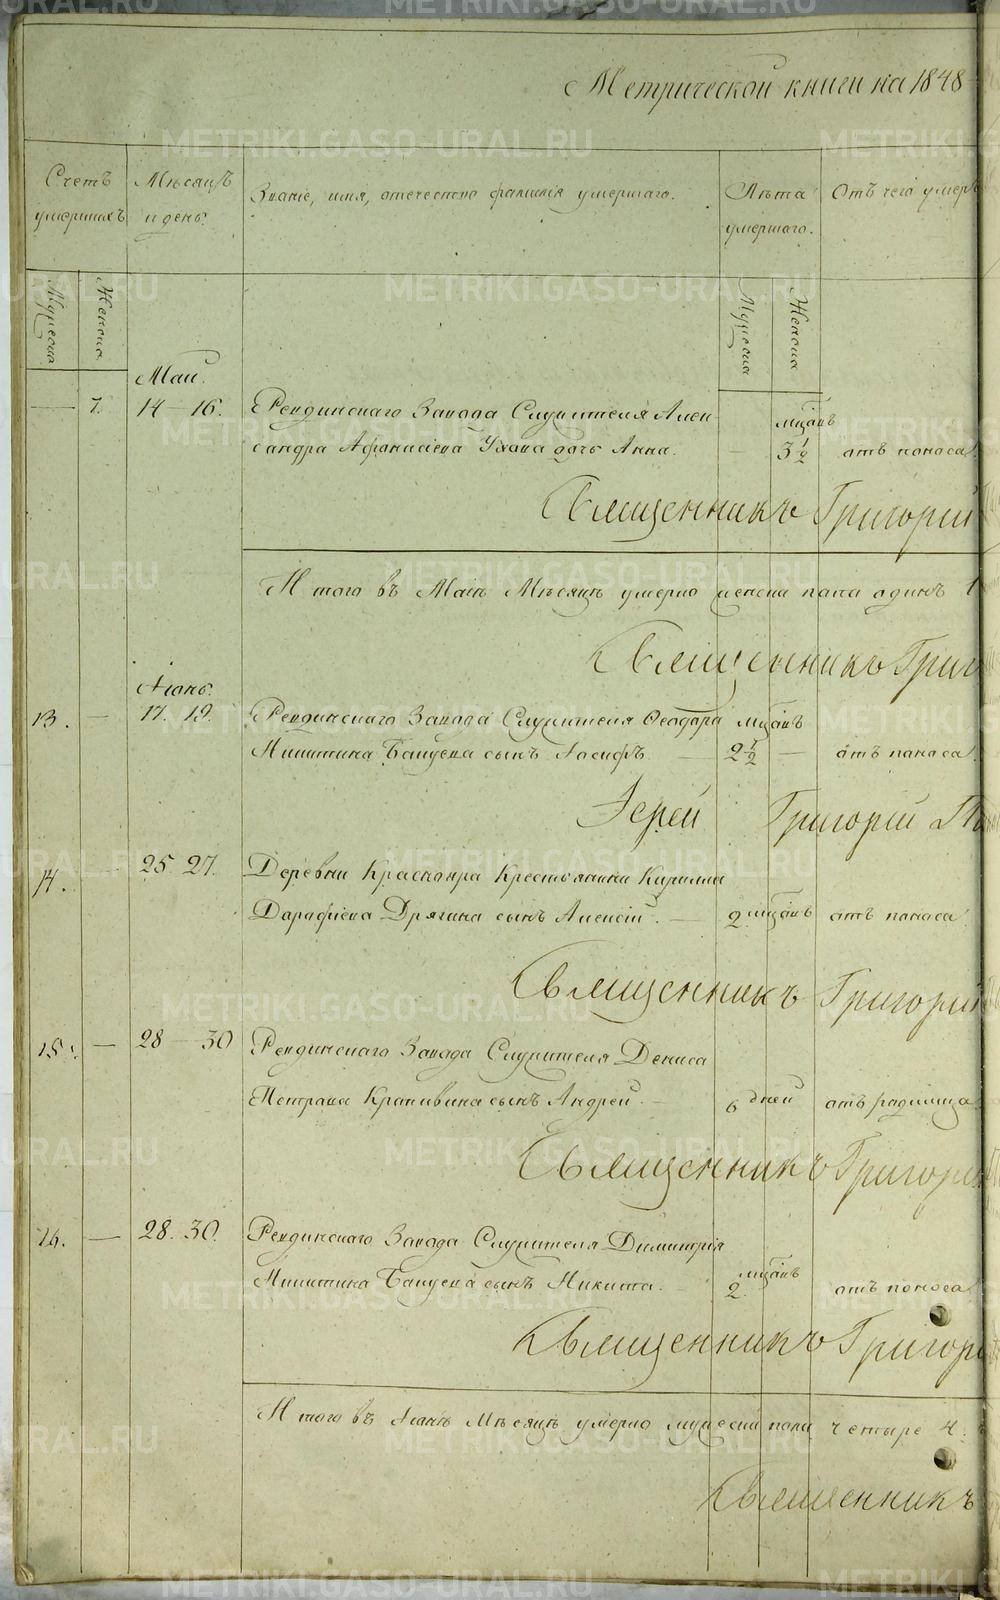 Метрической книги на 1848
Счетъ умершихъ
Мѣсяцъ и день.
Званіе, имя, отечество фамилія умершаго.
Лѣта умершаго.
Отъ чего умеръ
Мужеска
Женска
Мужеска
Женска
Май.
— 7. 14 — 16. Ревдинскаго Завода Служителя Алек- мцовъ
сандра Афанасіева Ухова дочь Анна. — 3 1/2 отъ поноса.
Священникъ Григорій
Итого въ Маіѣ Мѣсяцѣ умерло женска пола одинъ 1
Священникъ Григ
Іюнь.
13. — 17. 19. Ревдинскаго Завода Служителя Ѳеодора мцовъ
Никитина сынъ Іосифъ — 2 1/2 — отъ поноса.
Іерей Григорій По
14. — 25 27. Деревни Краснояра Крестьянина Кирилла
Дорофіева Дрягина сынъ Алексій. — 2 мцовъ отъ поноса.
Священникъ Григорій
15. — 28 — 30 Ревдинскаго Завода Служителя Дениса
Петрова Крапивина сынъ Андрей. — 6 дней отъ родимца.
Священникъ Григорі
16. — 28. 30. Ревдинскаго Завода Служителя Димитрія
Никитина сынъ Никита. — 2 мцовъ отъ поноса.
Священникъ Григорі
Итого въ Іюнѣ Мѣсяцѣ умерло мужеска пола четыре 4.
Священникъ
METRIKI.GASO-URAL.RU